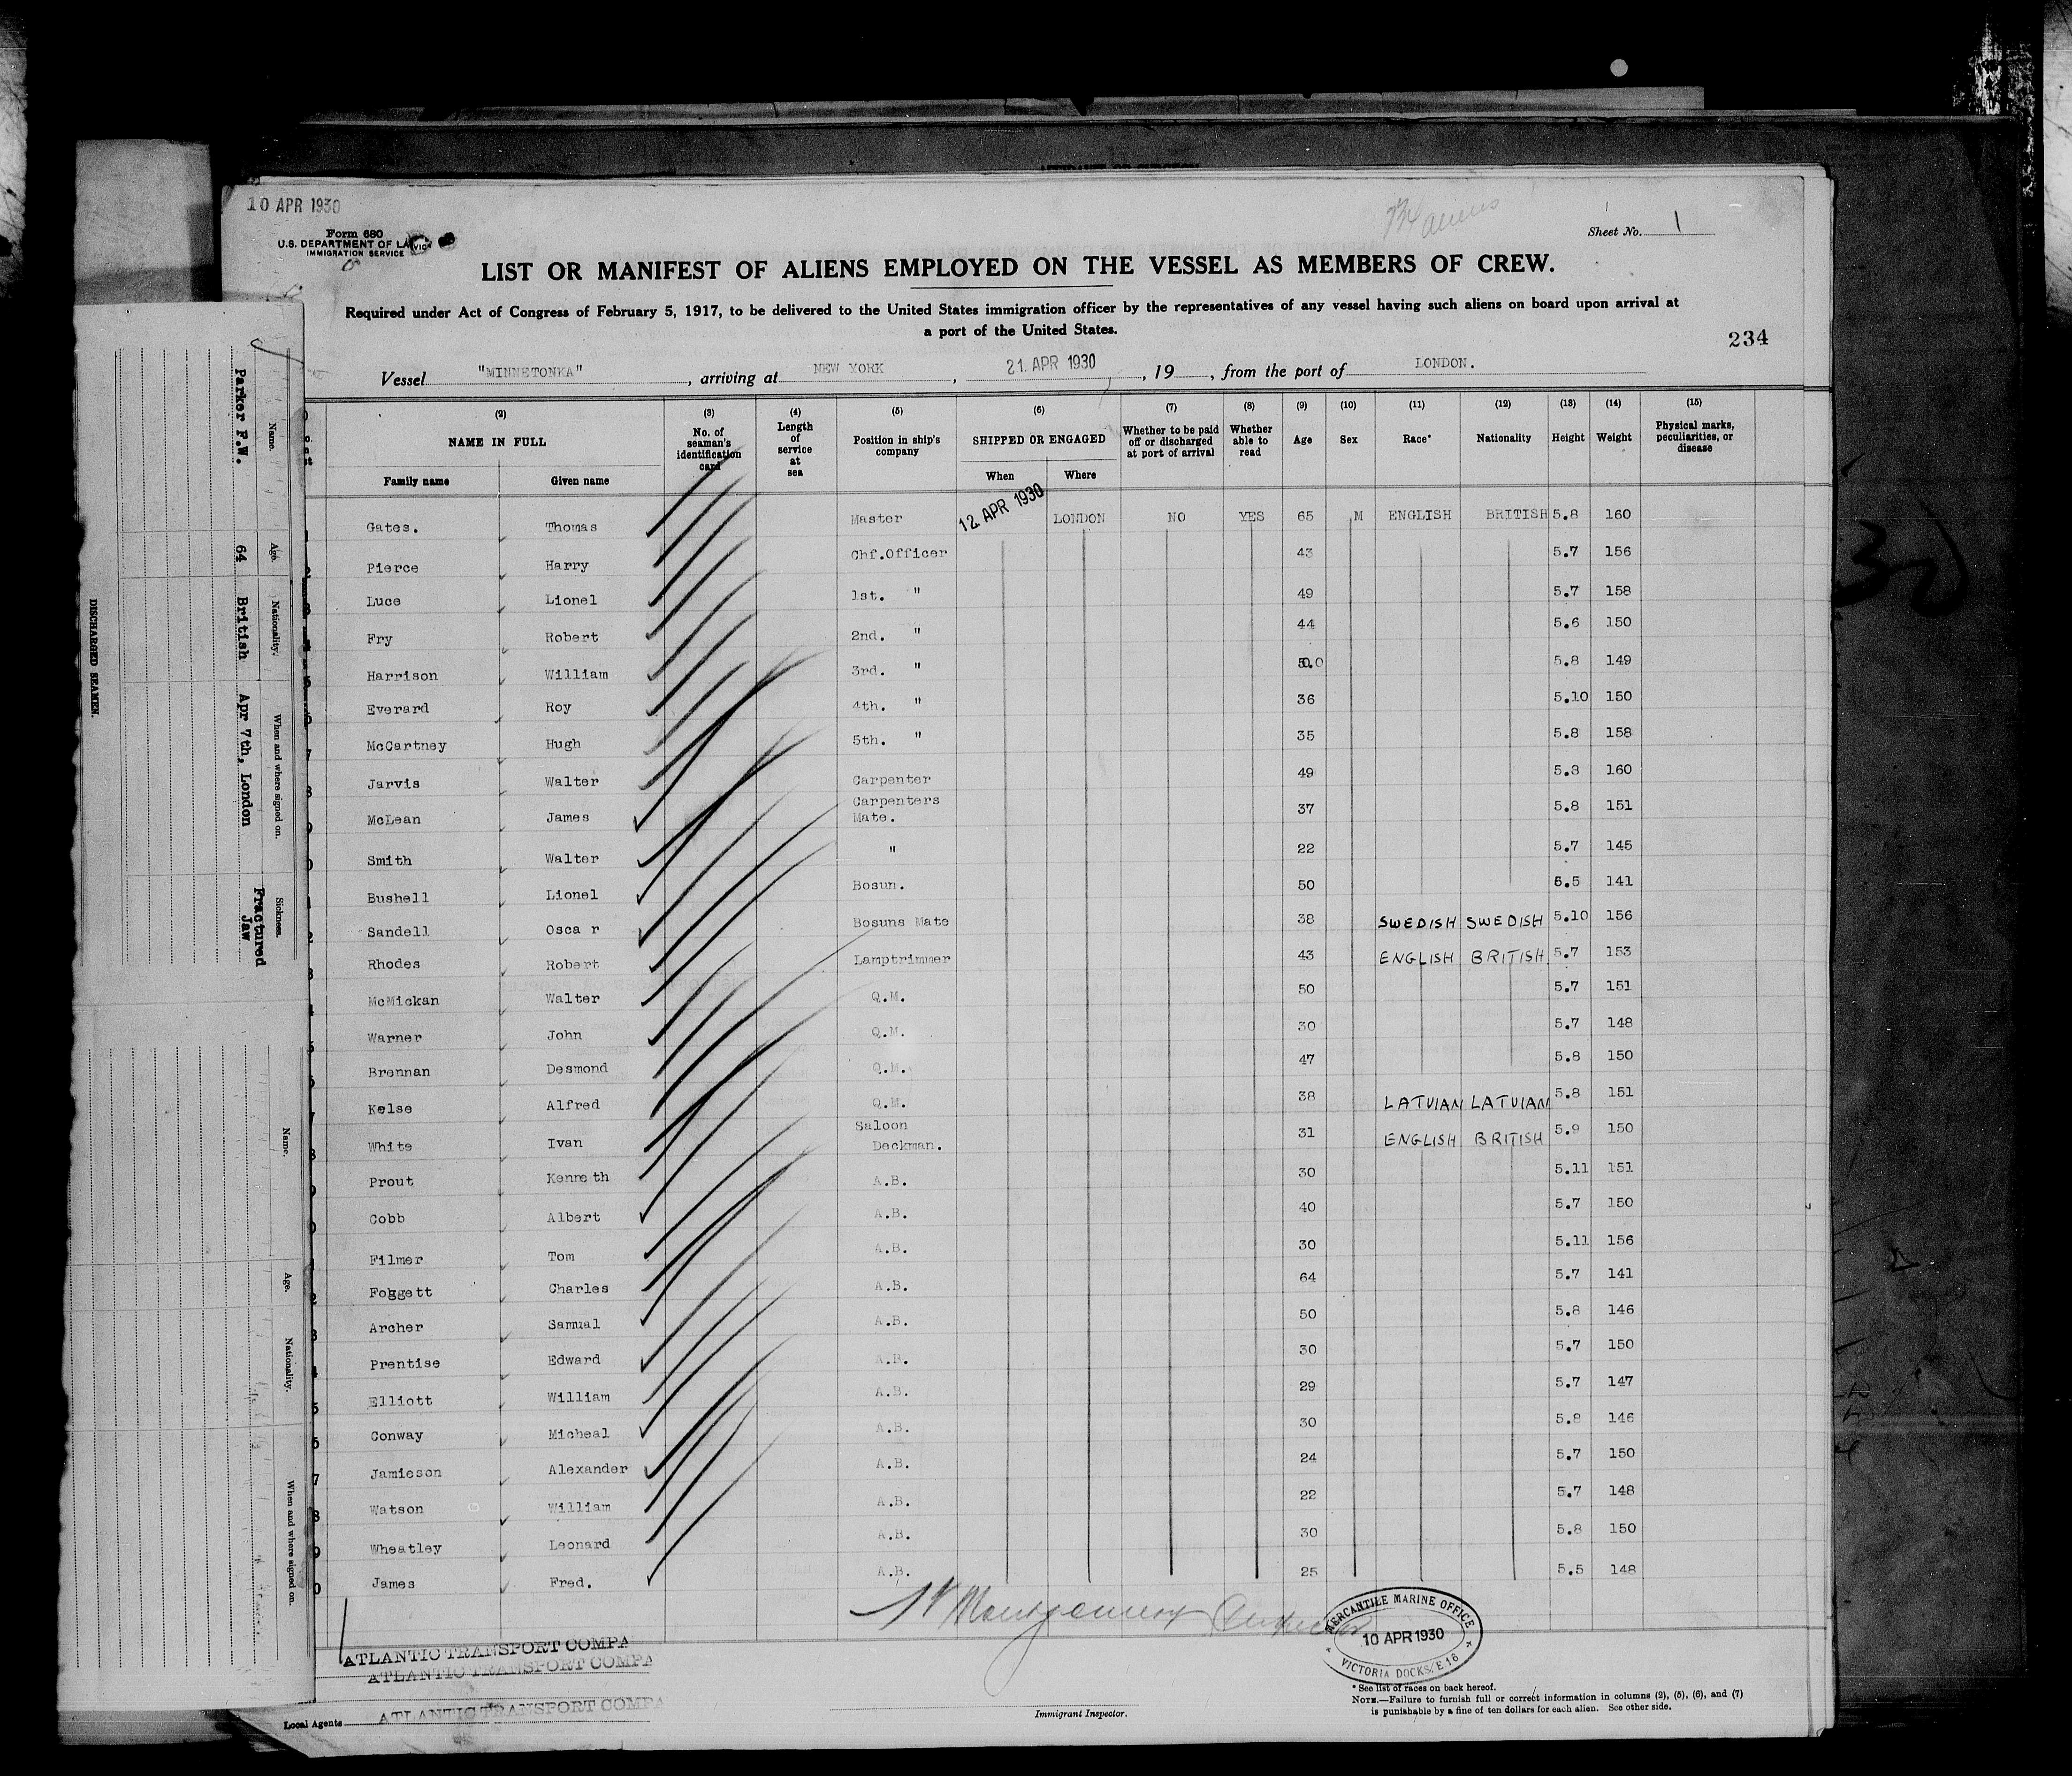 10 APR 1930
Form 680
U.S. DEPARTMENT OF LA
IMMIGRATION SERVICE
aliens
Sheet No. 1
LIST OR MANIFEST OF ALIENS EMPLOYED ON THE VESSEL AS MEMBERS OF CREW.
Required under Act of Congress of February 5, 1917, to be delivered to the United States immigration officer by the representatives of any vessel having such aliens on board upon arrival at
a port of the United States.
234
Vessel "MINNETONKA", arriving at NEW YORK, 21. APR 1930, 19, from the port of LONDON.
(2) (3) (4) (5) (6) (7) (8) (9) (10) (11) (12) (13) (14) (15)
NAME IN FULL
Family name Given name
No. of seaman's identification card
Length of service at sea
Position in ship's company
SHIPPED OR ENGAGED
When Where
Whether to be paid off or discharged at port of arrival
Whether able to read
Age Sex Race* Nationality Height Weight
Physical marks, peculiarities, or disease
Gates. Thomas Master 12. APR 1930 LONDON NO YES 65 M ENGLISH BRITISH 5.8 160
Pierce Harry Chf.Officer 43 5.7 156
Luce Lionel 1st. " 49 5.7 158
Fry Robert 2nd. " 44 5.6 150
Harrison William 3rd. " 5.8 149
Everard Roy 4th. " 36 5.10 150
McCartney Hugh 5th. " 35 5.8 158
Jarvis Walter Carpenter 49 5.8 160
McLean James Carpenters Mate. 37 5.8 151
Smith Walter " 22 5.7 145
Bushell Lionel Bosun. 50 5.5 141
Sandell Osca r Bosuns Mate 38 SWEDISH SWEDISH 5.10 156
Rhodes Robert Lamptrimmer 43 ENGLISH BRITISH 5.7 153
McMickan Walter Q.M. 50 5.7 151
Warner John Q.M. 30 5.7 148
Brennan Desmond Q.M. 47 5.8 150
Kelse Alfred Q.M. 38 LATVIAN LATVIAN 5.8 151
White Ivan Saloon Deckman. 31 ENGLISH BRITISH 5.9 150
Prout Kenneth A.B. 30 5.11 151
Cobb Albert A.B. 40 5.7 150
Filmer Tom A.B. 30 5.11 156
Foggett Charles A.B. 64 5.7 141
Archer Samual A.B. 50 5.8 146
Prentise Edward A.B. 30 5.7 150
Elliott William A.B. 29 5.7 147
Conway Micheal A.B. 30 5.8 146
Jamieson Alexander A.B. 24 5.7 150
Watson William A.B. 22 5.7 148
Wheatley Leonard A.B. 30 5.8 150
James Fred. A.B. 25 5.5 148
Montgomery
MERCANTILE MARINE OFFICE
10 APR 1930
VICTORIA DOCKS, E 16
ATLANTIC TRANSPORT COMPA
ATLANTIC TRANSPORT COMPA
ATLANTIC TRANSPORT COMPA
Local Agents
Immigrant Inspector.
* See list of races on back hereof.
NOTE.—Failure to furnish full or correct information in columns (2), (5), (6), and (7)
is punishable by a fine of ten dollars for each alien. See other side.
DISCHARGED SEAMEN.
Name. Age. Nationality. When and where signed on. Sickness.
Parker F.W. 64 British Apr 7th, London Fractured Jaw
Name. Age. Nationality. When and where signed on.